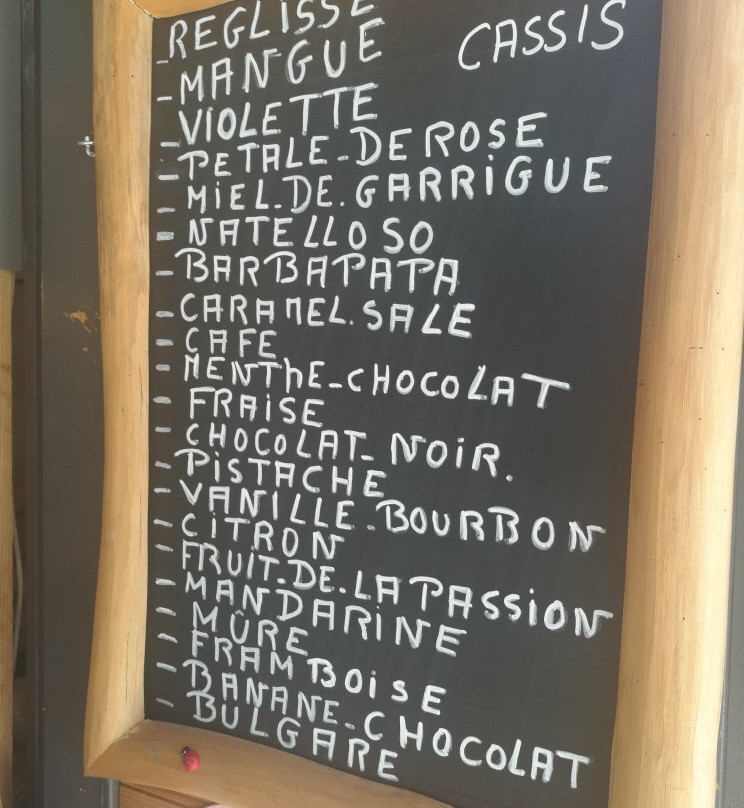 - REGLISSE
CASSIS
- MANGUE
- VIOLETTE
- PETALE-DE ROSE
- MIEL.DE.GARRiGUE
- NATELLOSO
- BARBAPAPA
- CARAMEL.SALE
- CAFE
- MENThE-CHOCOLAT
- FRAiSE
- CHOCOLAT- NOiR.
- PiSTACHE
- VANiLLE-BOURBON
- CiTRON
- FRUiT-DE.LA PASSiON
- MANDARiNE
- MÛRE
- FRAMBOiSE
- BANANE-CHOCOLAT
- BULGARE